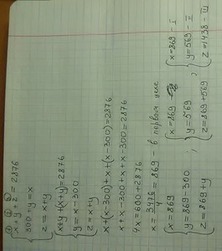 ① ② ③
x+y+z=2876
300+y=x
z=x+y
x+y+(x+y)=2876
y=x-300
z=x+y
x+(x-300)+x+(x-300)=2876
x+x-300+x+x-300=2876
4x=600+2876
x=3476/4=869 в первом цехе
x=869
y=869-300
z=869+y
x=869
y=569
z=869+569
x=869-I
y=569-II
z=1438-III